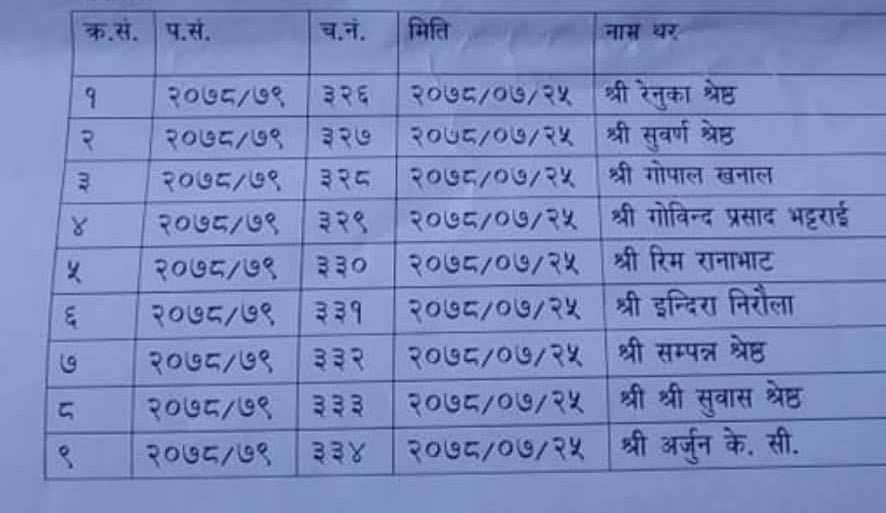 क्र.सं. प.सं. च.नं. मिति नाम थर
१ २०७८/७९ ३२६ २०७८/०७/२५ श्री रेनुका श्रेष्ठ
२ २०७८/७९ ३२७ २०७८/०७/२५ श्री सुवर्ण श्रेष्ठ
३ २०७८/७९ ३२८ २०७८/०७/२५ श्री गोपाल खनाल
४ २०७८/७९ ३२९ २०७८/०७/२५ श्री गोविन्द प्रसाद भट्टराई
५ २०७८/७९ ३३० २०७८/०७/२५ श्री रिम रानाभाट
६ २०७८/७९ ३३१ २०७८/०७/२५ श्री इन्दिरा निरौला
७ २०७८/७९ ३३२ २०७८/०७/२५ श्री सम्पन्न श्रेष्ठ
८ २०७८/७९ ३३३ २०७८/०७/२५ श्री श्री सुवास श्रेष्ठ
९ २०७८/७९ ३३४ २०७८/०७/२५ श्री अर्जुन के. सी.